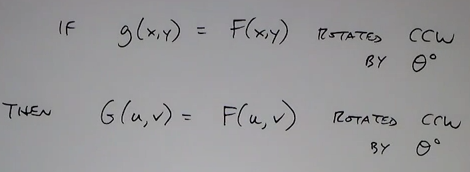 IF g(x,y) = F(x,y) ROTATED CCW
BY θ°
THEN G(u,v) = F(u,v) ROTATED CCW
BY θ°